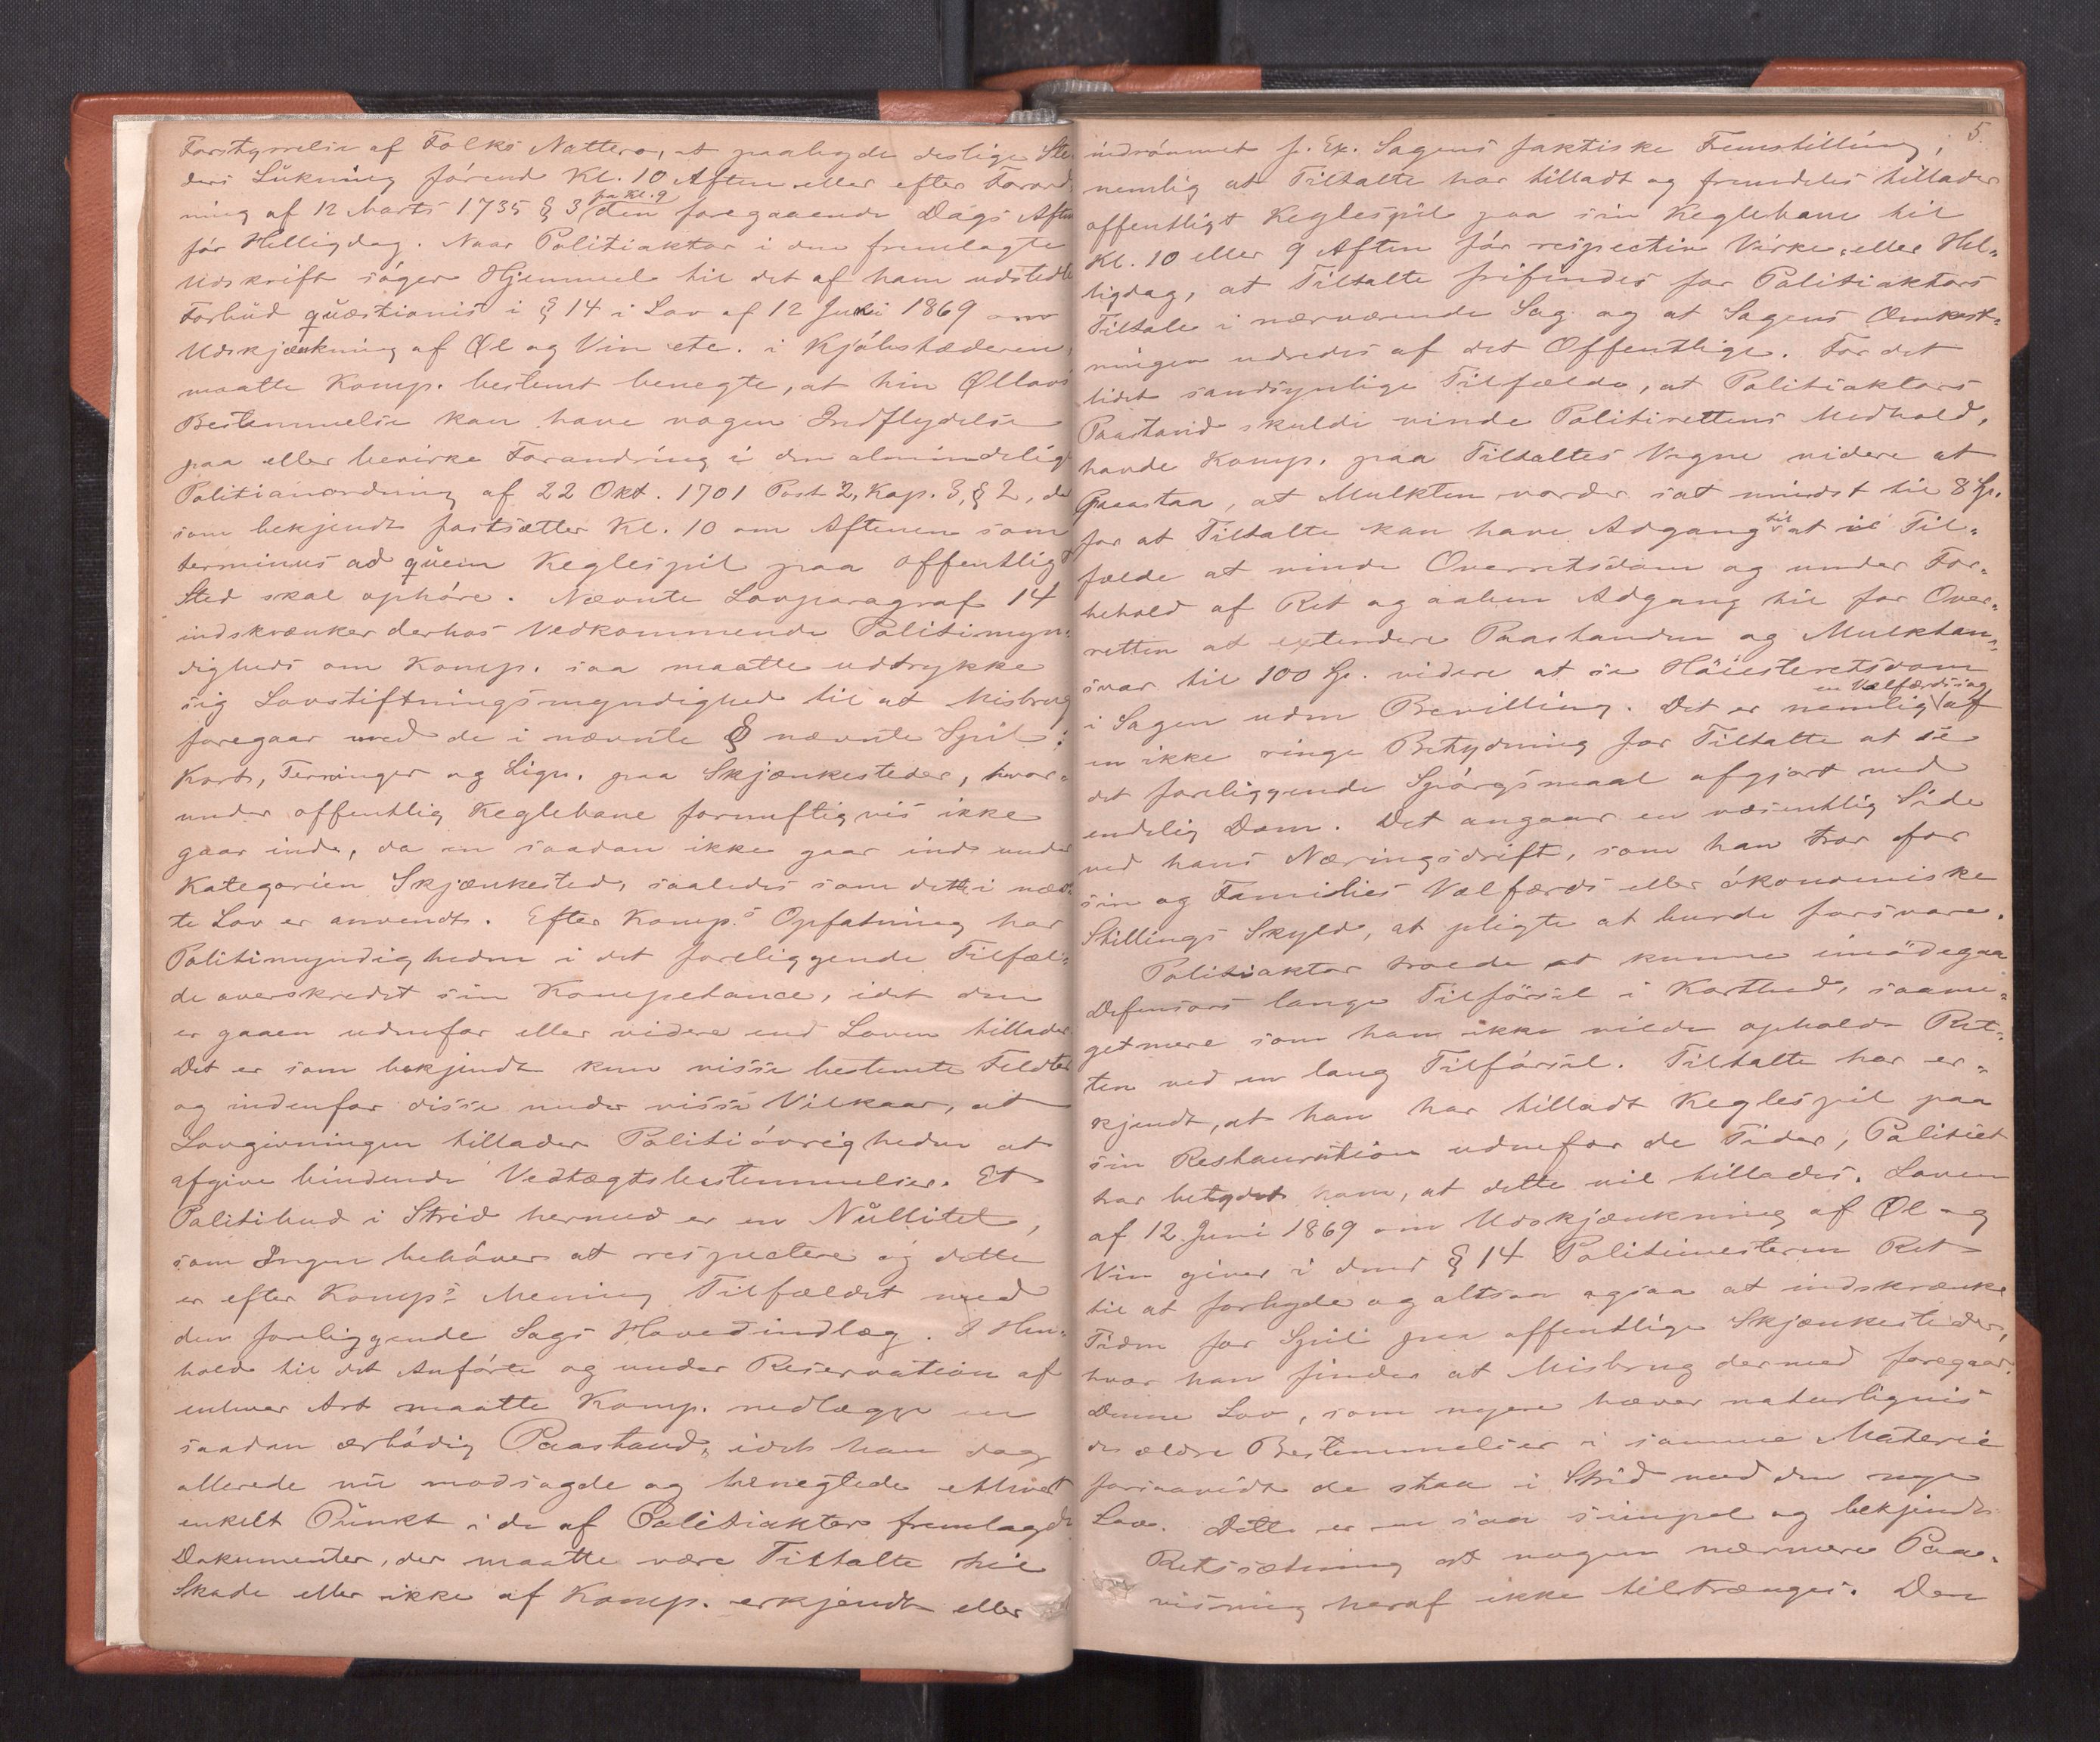 Forstyrrelse af Folks Nattero, at paabyde deslige Ste-
ders Lukning førend Kl. 10 Aften eller efter Forord-
ning af 12 Marts 1735 § 3 fra Kl. 9 den foregaaende Dags Aften
før Helligdag. Naar Politiaktor i den fremlagte
Udskrift søger Hjemmel til det af ham udstedte
Forbud quæstionis i § 14 i Lov af 12 Juni 1869 om
Udskjænkning af Øl og Vin etc. i Kjøbstæderen,
maatte Komp. bestemt benegte, at hin Øllovs
Bestemmelse kan have nogen Indflydelse
paa eller bevirke Forandring i den almindelige
Politianordning af 22 Okt. 1701 Post 2, Kap. 3, § 2, der
som bekjendt fastsætter Kl. 10 om Aftenen som
terminus ad quem Keglespil paa offentligt
Sted skal ophøre. Nævnte Lovparagraf 14
indskrænker derhos Vedkommende Politimyn-
digheds om Komp. saa maatte udtrykke
sig Lovstiftningsmyndighed til at Misbrug
foregaar med de i nævnte § nævnte Spil:
Kort, Terninger og Lign. paa Skjænkesteder, hvor-
under offentlig Keglebane fornuftigvis ikke
gaar ind, da en saadan ikke gaar ind under
Kategorien Skjænkested, saaledes som dette i nævn-
te Lov er anvendt. Efter Komp.s Opfatning har
Politimyndigheden i det foreliggende Tilfæl-
de overskredet sin Kompetance, idet den
er gaaen udenfor eller videre end Loven tillader.
Det er som bekjendt kun visse bestemte Feldter
og indenfor disse under visse Vilkaar, at
Lovgivningen tillader Politiøvrigheden at
afgive bindende Vedtægtsbestemmelser. Et
Politibud i Strid hermed er en Nullitet,
som Ingen behøver at respectere og dette
er efter Komp.s Mening Tilfældet med
den foreliggende Sags Hovedindlæg. I Hen-
hold til det Anførte og under Reservation af
enhver Art maatte Komp. nedlægge en
saadan ærbødig Paastand, idet han dog
allerede nu modsagde og benegtede ethvert
enkelt Punkt i de af Politiaktor fremlagde
Dokumenter, der maatte være Tiltalte til
Skade eller ikke af Komp. erkjendt eller
5.
indrømmet f. Ex. Sagens faktiske Fremstilling,
nemlig at Tiltalte har tilladt og fremdeles tillader
offentligt Keglespil paa sin Keglebane til
Kl. 10 eller 9 Aften før respective Virke- eller Hel-
ligdag, at Tiltalte frifindes for Politiaktors
Tiltale i nærværende Sag og at Sagens Omkost-
ningen udredes af det Offentlige. For det
lidet sandsynlige Tilfælde, at Politiaktors
Paastand skulde vinde Politirettens Medhold,
havde Komp. paa Tiltaltes Vegne videre at
paastaa, at Mulkten vorder sat mindst til 8 Sp.
for at Tiltalte kan have Adgang til at i Til-
fælde at vinde Overretsdom og under For-
behold af Ret og aaben Adgang til for Over-
retten at extendere Paastanden og Mulktan-
svar til 100 Sp. videre at se Høiesteretsdom
i Sagen uden Bevilling. Det er nemlig en Velfærdssag af
en ikke ringe Betydning for Tiltalte at se
det foreliggende Spørgsmaal afgjort ved
endelig Dom. Det angaar en væsentlig Side
ved hans Næringsdrift, som han tror for
sin og Families Velfærds eller økonomiske
Stillings Skyld, at pligte at burde forsvare.
Politiaktor troede at kunne imødegaa
Defensors lange Tilførsel i Korthed, saame-
getmere som han ikke vilde opholde Ret-
ten ved en lang Tilførsel. Tiltalte har er-
kjendt, at han har tilladt Keglespil paa
sin Restauration udenfor de Tider, Politiet
har betydet ham, at dette vil tillades. Loven
af 12 Juni 1869 om Udskjænkning af Øl og
Vin giver i dens § 14 Politimesteren Ret
til at forbyde og altsaa ogsaa at indskrænke
Tiden for Spil paa offentlige Skjænkesteder,
hvor han finder at Misbrug dermed foregaar.
Denne Lov, som nyere hæver naturligvis
de ældre Bestemmelser i samme Materie
forsaavidt de staa i Strid med den nye
Lov. Dette er en saa simpel og bekjendt
Retssætning at nogen nærmere Paa-
visning heraf ikke tiltrænges. Den